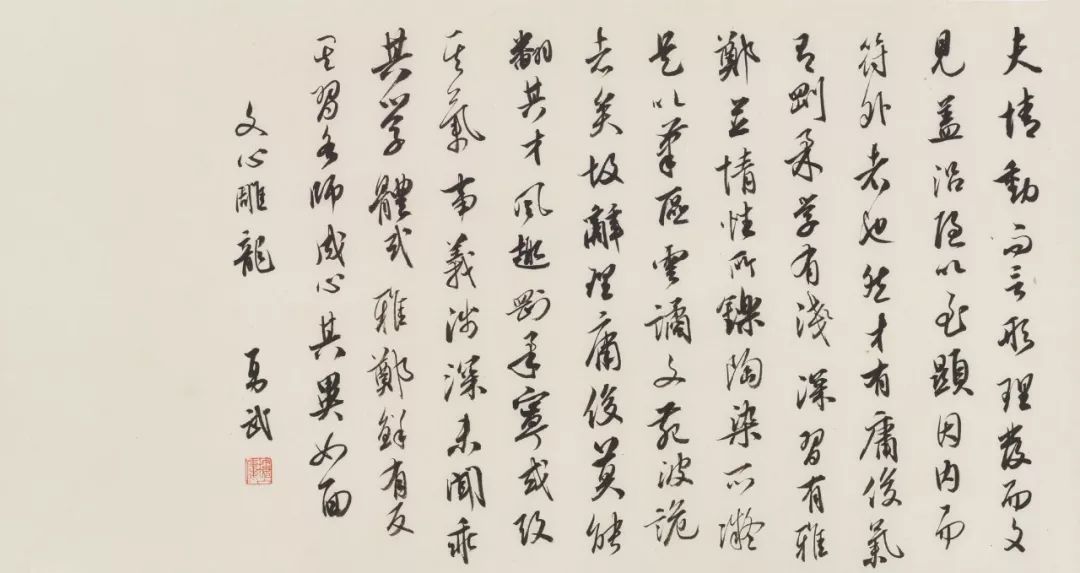 夫情動而言形理發而文
見蓋沿隱以至顯因内而
符外者也然才有庸俊氣
有剛柔学有淺深習有雅
鄭並情性所鑠陶染所凝
是以筆區雲譎文苑波詭
者矣故辭理庸俊莫能
翻其才風趣剛柔寧或改
其氣事義淺深未聞乖
其學體式雅鄭鮮有反
其習各師成心其異如面
文心雕龍 武